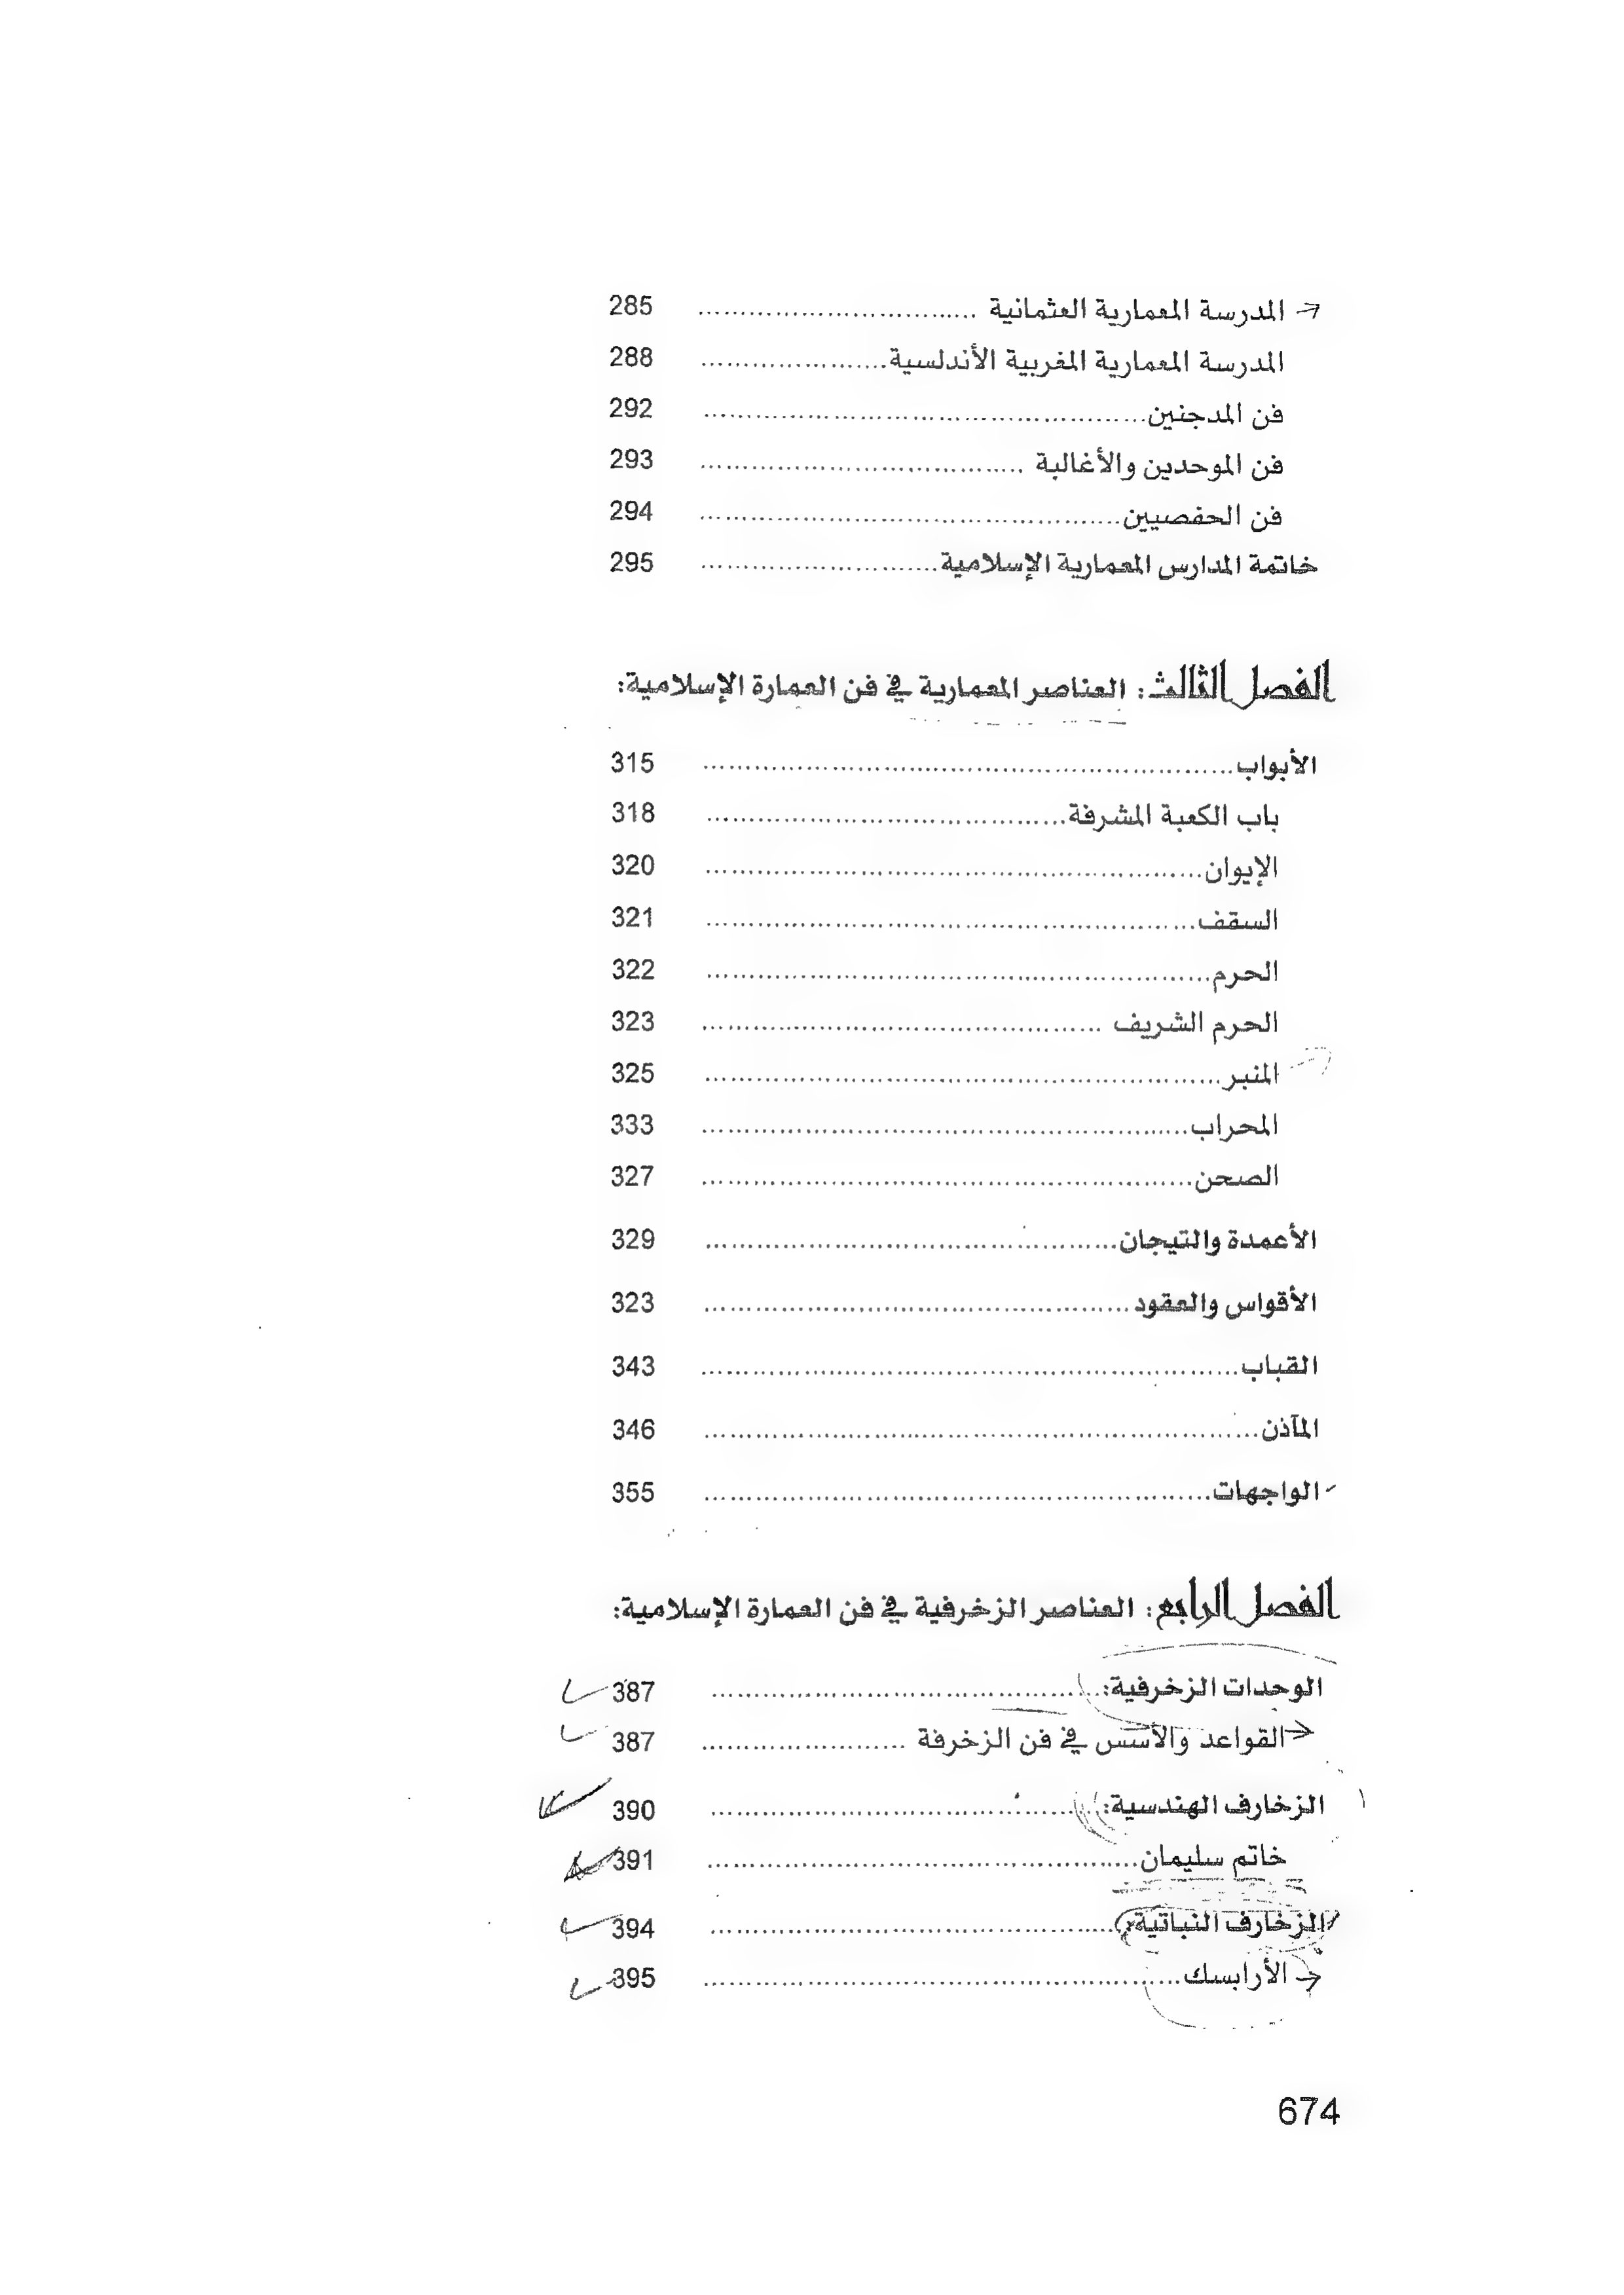 المدرسة المعمارية العثمانية ................................ 285
المدرسة المعمارية المغربية الأندلسية...................... 288
فن المدجنين................................................... 292
فن الموحدين والأغالبة ..................................... 293
فن الحفصيين................................................. 294
خاتمة المدارس المعمارية الإسلامية........................... 295
الفصل الثالث: العناصر المعمارية في فن العمارة الإسلامية:
الأبواب............................................................. 315
باب الكعبة المشرفة......................................... 318
الإيوان......................................................... 320
السقف......................................................... 321
الحرم.......................................................... 322
الحرم الشريف .............................................. 323
المنبر........................................................... 325
المحراب........................................................ 333
الصحن........................................................ 327
الأعمدة والتيجان............................................... 329
الأقواس والعقود................................................. 323
القباب.............................................................. 343
المآذن............................................................... 346
الواجهات.......................................................... 355
الفصل الرابع: العناصر الزخرفية في فن العمارة الإسلامية:
الوحدات الزخرفية:............................................. 387
القواعد والأسس في فن الزخرفة ........................ 387
الزخارف الهندسية:............................................. 390
خاتم سليمان.................................................. 391
الزخارف النباتية:............................................... 394
الأرابسك....................................................... 395
674